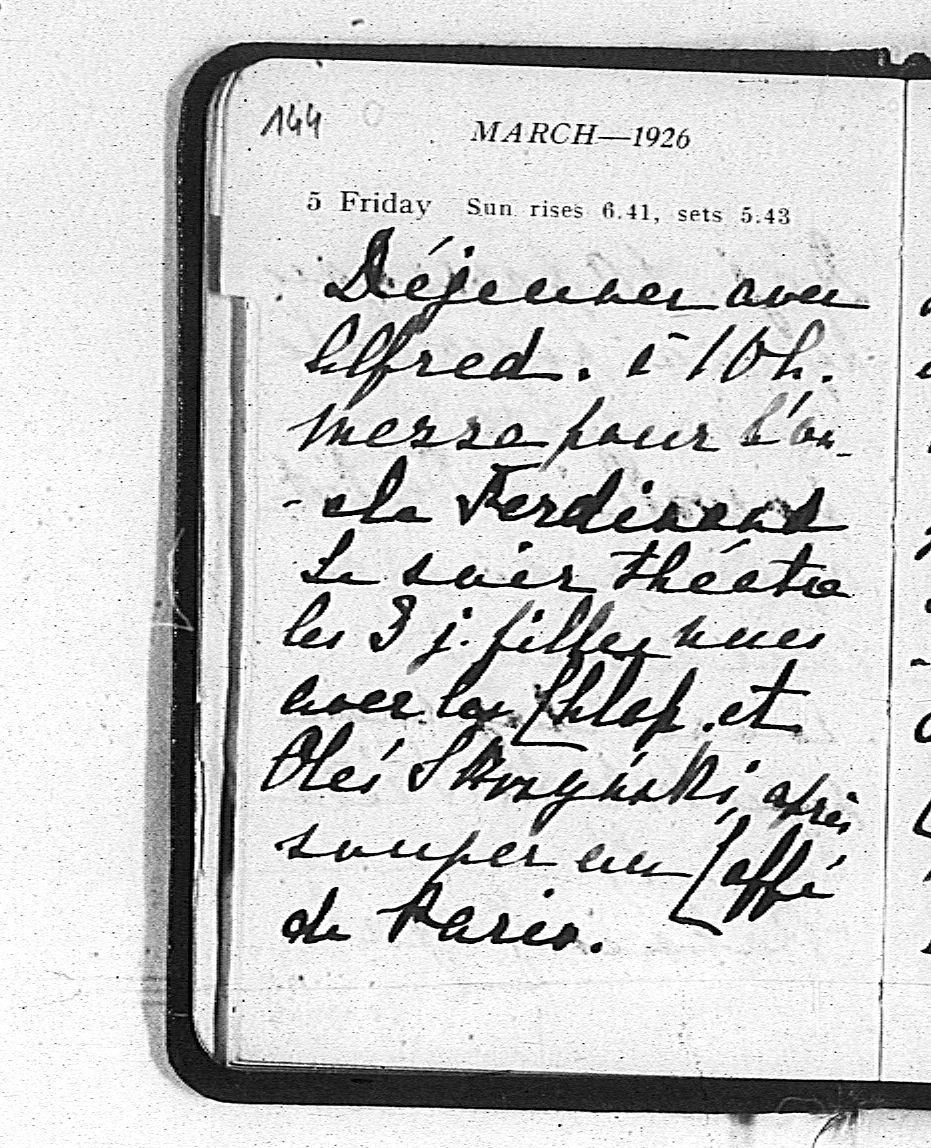 144
MARCH—1926
5 Friday Sun rises 6.41, sets 5.43
Déjeuner avec
Alfred. à 10h.
messe pour l'on-
-cle Ferdinand
Le soir théatre
les 3 j. filles nues
avec les Chlap. et
Oleś Skrzyński, après
souper au Caffé
de Paris.